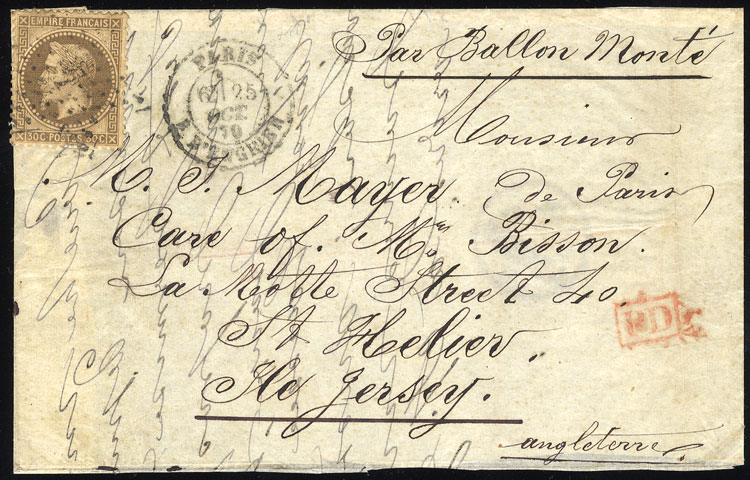 EMPIRE FRANÇAIS
30C POSTES 30C
PARIS
25
OCT
70
Par Ballon Monté
Monsieur
M. J. Mayer de Paris
Care of. Mrs Bisson.
La Motte Street 40.
St Helier.
Ile Jersey.
angleterre.
PD